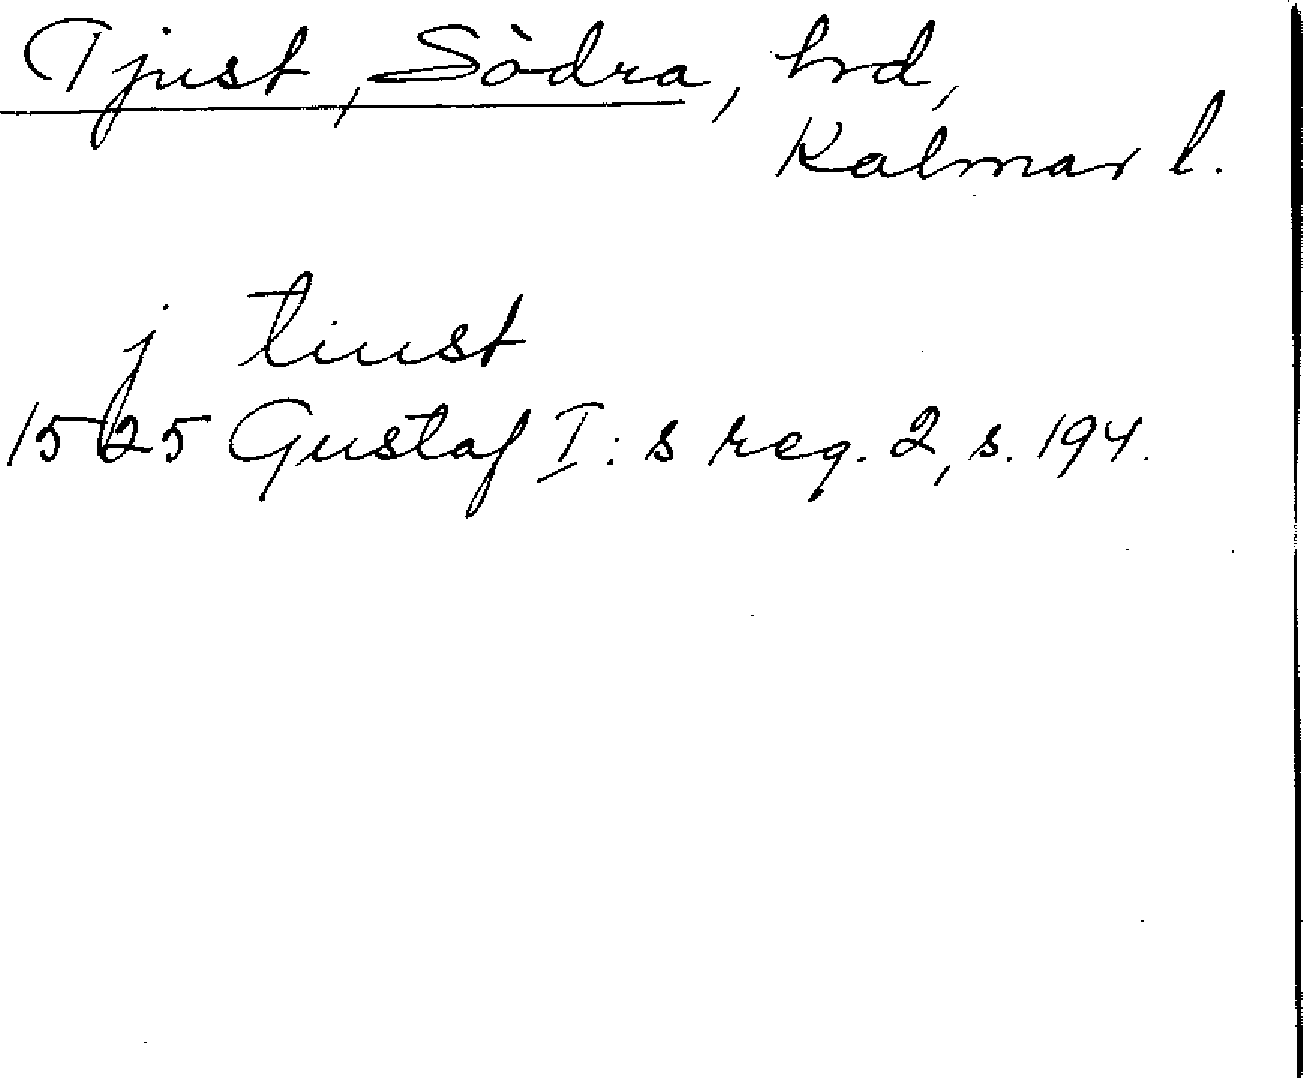 Tjust, Södra, hrd,
Kalmar l.
j tiust
1525 Gustaf I:s reg. 2, s. 194.